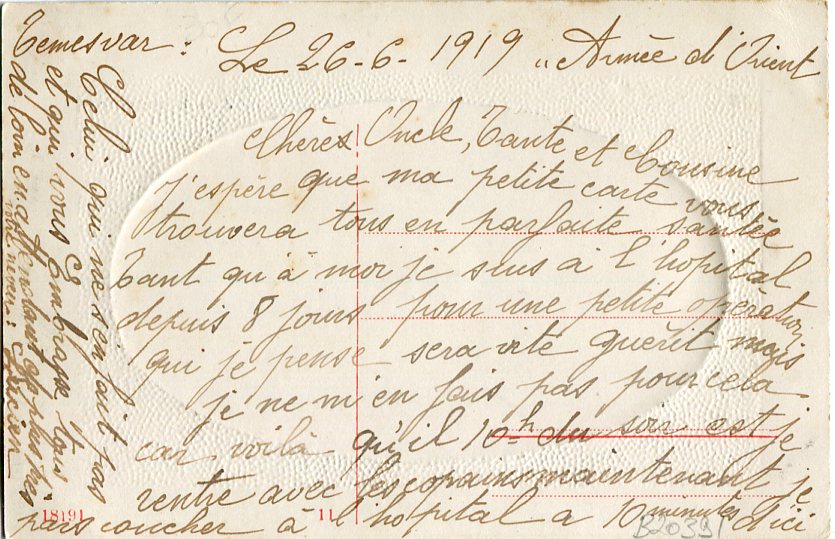 Temesvar : Le 26-6-1919 "Armée d'Orient
Chères Oncle, Tante et Cousine
J'espère que ma petite carte vous
trouvera tous en parfaite santée
Tant qu'à moi je suis à l'hopital
depuis 8 jours pour une petite opération
qui je pense sera vite guèrit mais
je ne m'en fais pas pour cela
car voilà qu'il 10h du soir est je
rentre avec les copains maintenant je
pars coucher à l'hopital a 10 minutes d'ici
Celui qui ne s'en fait pas
et qui vous Embrasse tous
de loin en attendant de plus près
votre neveu :
18191
11
B20391